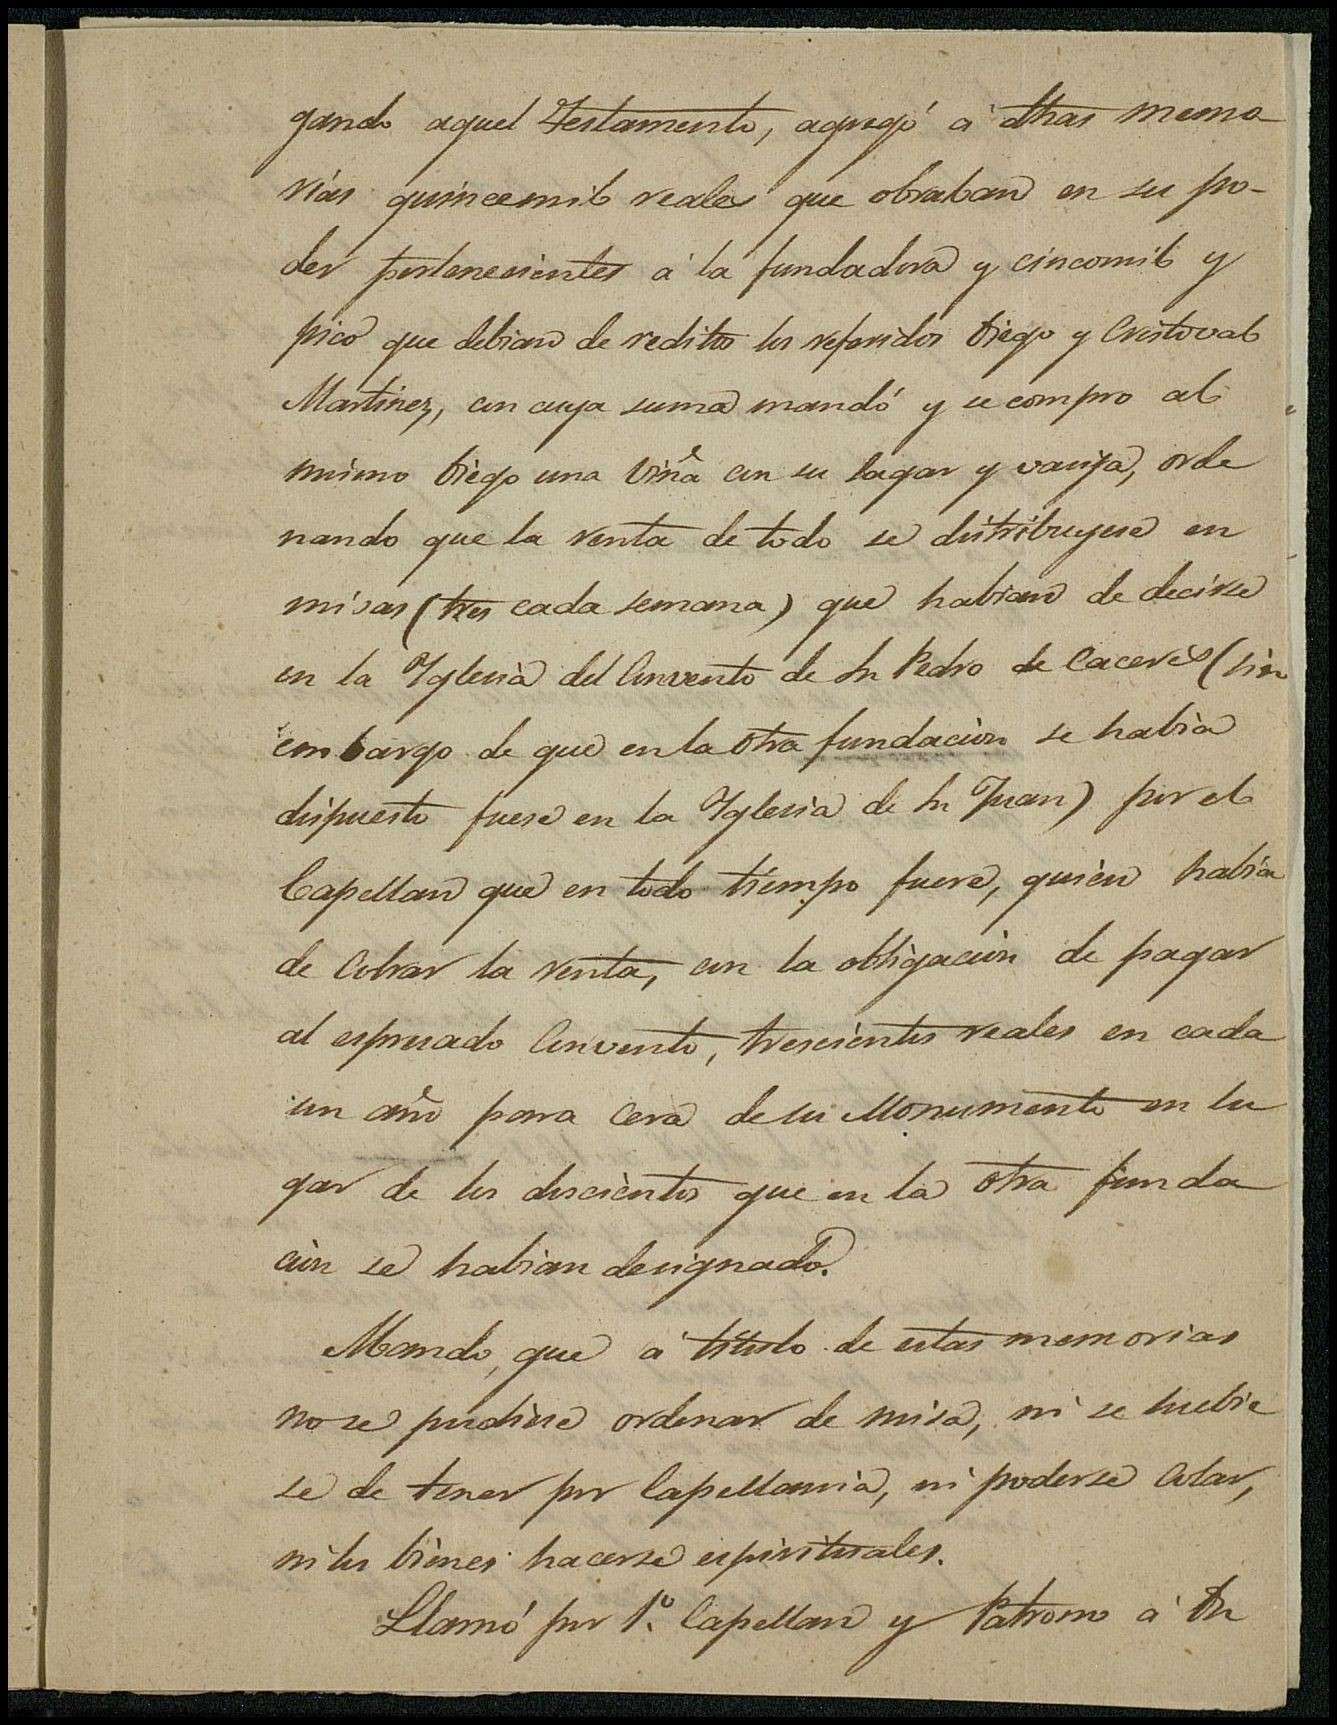 gando aquel Testamento, agregó á dhas memo-
rias quincemil reales que obraban en su po-
der pertenecientes á la fundadora y cincomil y
pico que debian de reditos los referidos Diego y Cristoval
Martinez, con cuya suma mandó y se compro al
mismo Diego una viña con su lagar y vasija, orde
nando que la renta de todo se distribuyese en
misas (tres cada semana) que habian de decirse
en la Yglesia del Convento de Sn Pedro de Caceres (sin
embargo de que en la otra fundacion se habia
dispuesto fuese en la Yglesia de Sn Juan) por el
Capellan que en todo tiempo fuere, quien habia
de cobrar la renta, con la obligacion de pagar
al espresado Convento, trescientos reales en cada
un año para cera de su Monumento en lu
gar de los doscientos que en la otra funda
cion se habian designado.
Mando, que á titulo de estas memorias
no se pudiese ordenar de misa, ni se hubie
se de tener por Capellania, ni poderse colar,
ni los bienes hacerse espirituales.
Llamó por 1º. Capellan y Patrono á Dn